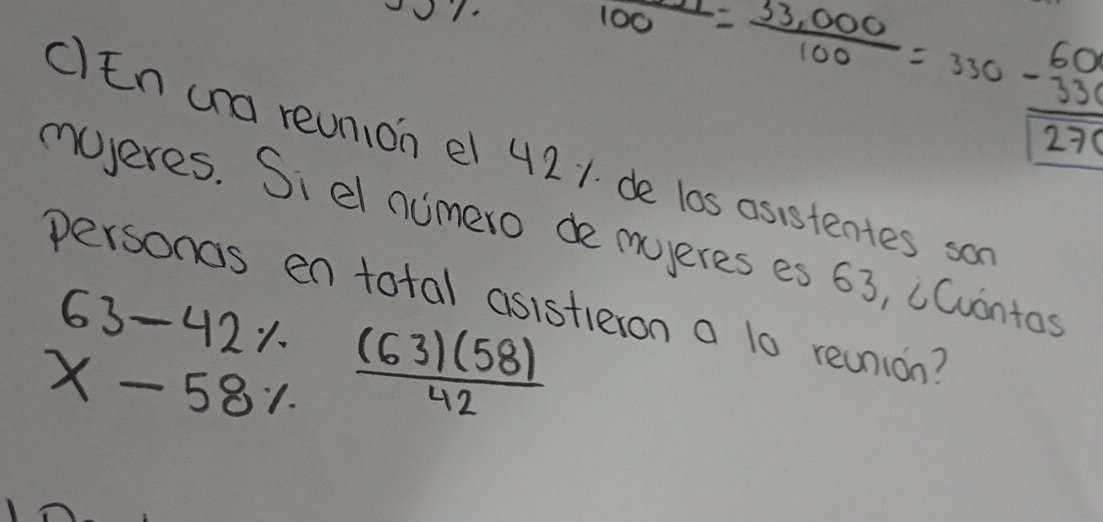 100 = 33,000 / 100 = 330 - 
270
c) En una reunión el 42 % de los asistentes son
mujeres. Si el número de mujeres es 63, ¿Cuántas
personas en total asistieron a la reunión?
63 - 42 %
X - 58 %
(63)(58)
42